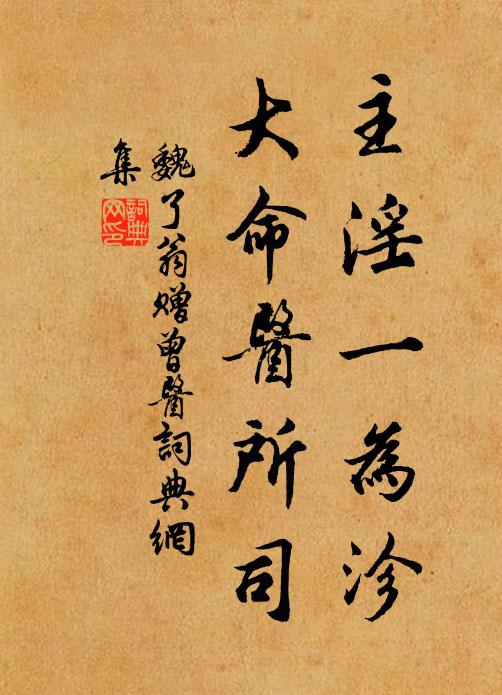 主淫一為沴
大命醫所司
魏了翁贈曾醫詞典網
集
詞典
网印